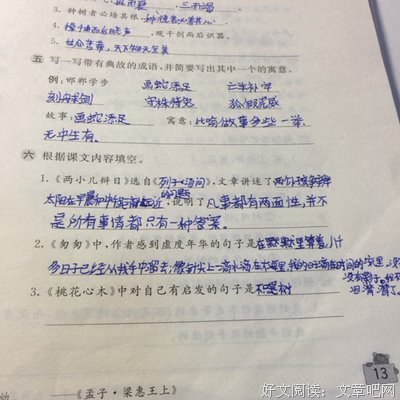 3. 种树者必培其根，种德者必养其心
4. 操千曲而后晓声，观千剑而后识器。
五 写一写带有典故的成语，并简要写出其中一个的寓意。
例：邯郸学步 画蛇添足 亡羊补牢
刻舟求剑 守株待兔 狐假虎威
故事：画蛇添足 寓意：比喻做事多些一举，
无中生有。
六 根据课文内容填空。
1.《两小儿辩日》选自《列子·汤问》，文章讲述了两个小孩争辩
的问题
太阳在早晨和中午，说明了凡事都有两面性，并不
是所有事情都只有一种答案。
2.《匆匆》中，作者感到虚度年华的句子是在默默里算着，八
多日子已经从我手中溜去，像针尖上一滴水滴在大海里，我的日子滴在时间的
3.《桃花心木》中对自己有启发的句子是不是树
13
——《孟子·梁惠王上》
好文阅读：文章吧网